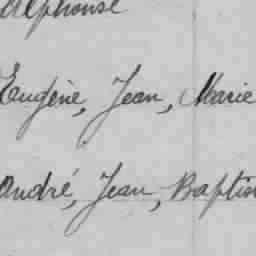 Alphonse
Eugène, Jean, Marie
André, Jean, Baptis